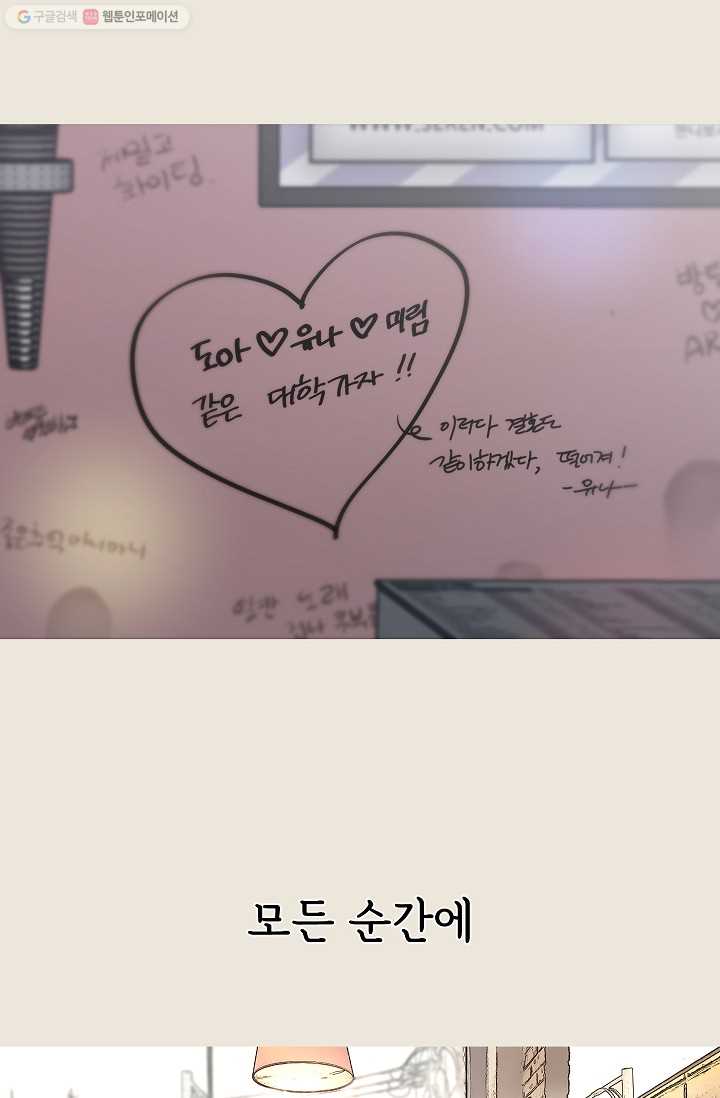 구글검색 웹툰인포메이션
WWW.SEREN.COM
세일고
화이팅
도아♡유나♡미림
같은 대학가자!!
이러다 결혼도
같이하겠다, 떨어져!
-유나-
좋은추억
일반 노래
모든 순간에